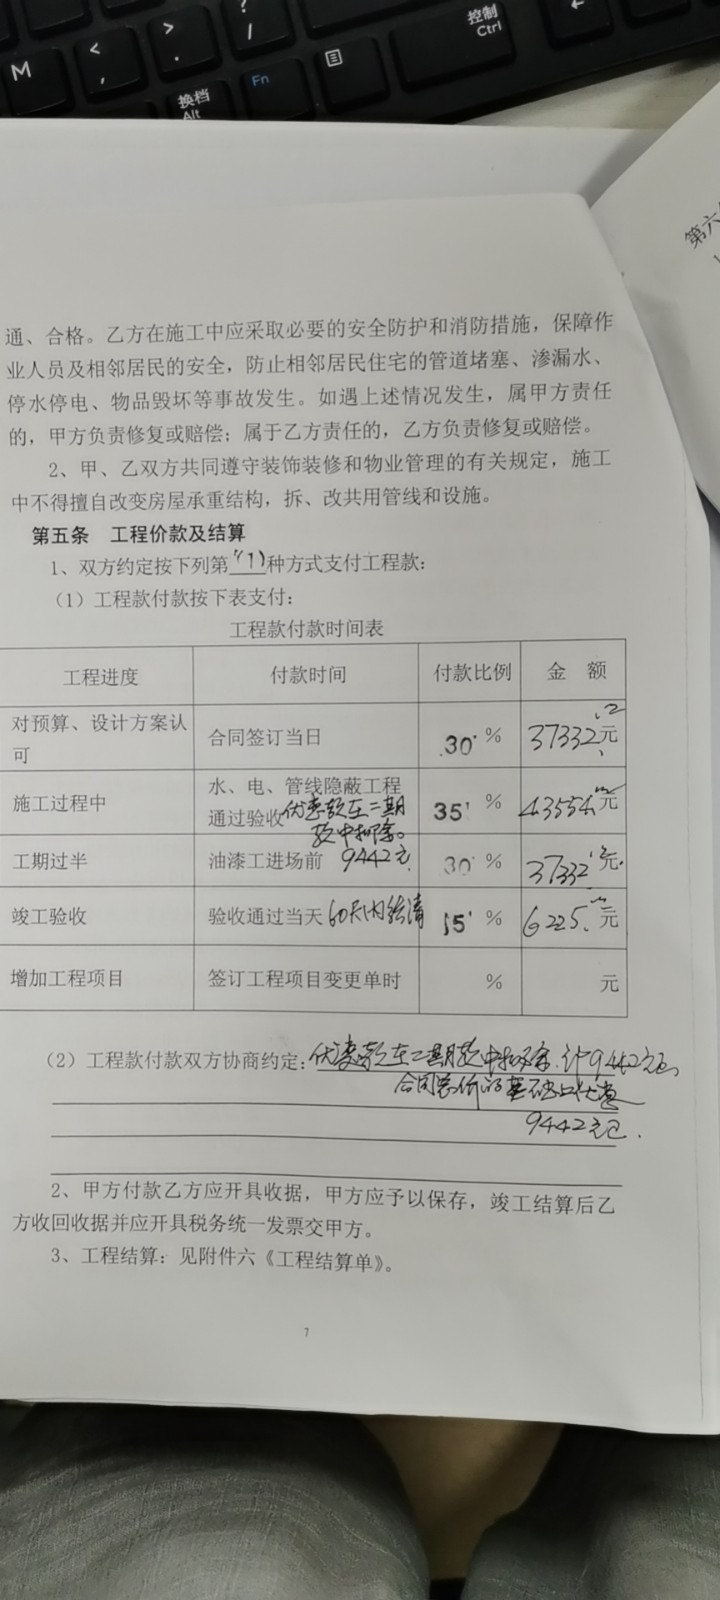 ?
/
控制
Ctrl
←
M
<
,
>
.
换档
Alt
Fn
第六
通、合格。乙方在施工中应采取必要的安全防护和消防措施，保障作
业人员及相邻居民的安全，防止相邻居民住宅的管道堵塞、渗漏水、
停水停电、物品毁坏等事故发生。如遇上述情况发生，属甲方责任
的，甲方负责修复或赔偿；属于乙方责任的，乙方负责修复或赔偿。
2、甲、乙双方共同遵守装饰装修和物业管理的有关规定，施工
中不得擅自改变房屋承重结构，拆、改共用管线和设施。
第五条 工程价款及结算
1、双方约定按下列第(1)种方式支付工程款：
（1）工程款付款按下表支付：
工程款付款时间表
工程进度 付款时间 付款比例 金 额
对预算、设计方案认
可 合同签订当日 30 % 37332 元
施工过程中 水、电、管线隐蔽工程
通过验收 优惠款在二期
款中扣除。 35 % 43554 元
工期过半 油漆工进场前 9442元 30 % 37332 元
竣工验收 验收通过当天 60天内结清 5 % 6225 元
增加工程项目 签订工程项目变更单时 % 元
（2）工程款付款双方协商约定：优惠款在二期款中扣除.计9442元
合同总价的基础上优惠
9442元.
2、甲方付款乙方应开具收据，甲方应予以保存，竣工结算后乙
方收回收据并应开具税务统一发票交甲方。
3、工程结算：见附件六《工程结算单》。
7